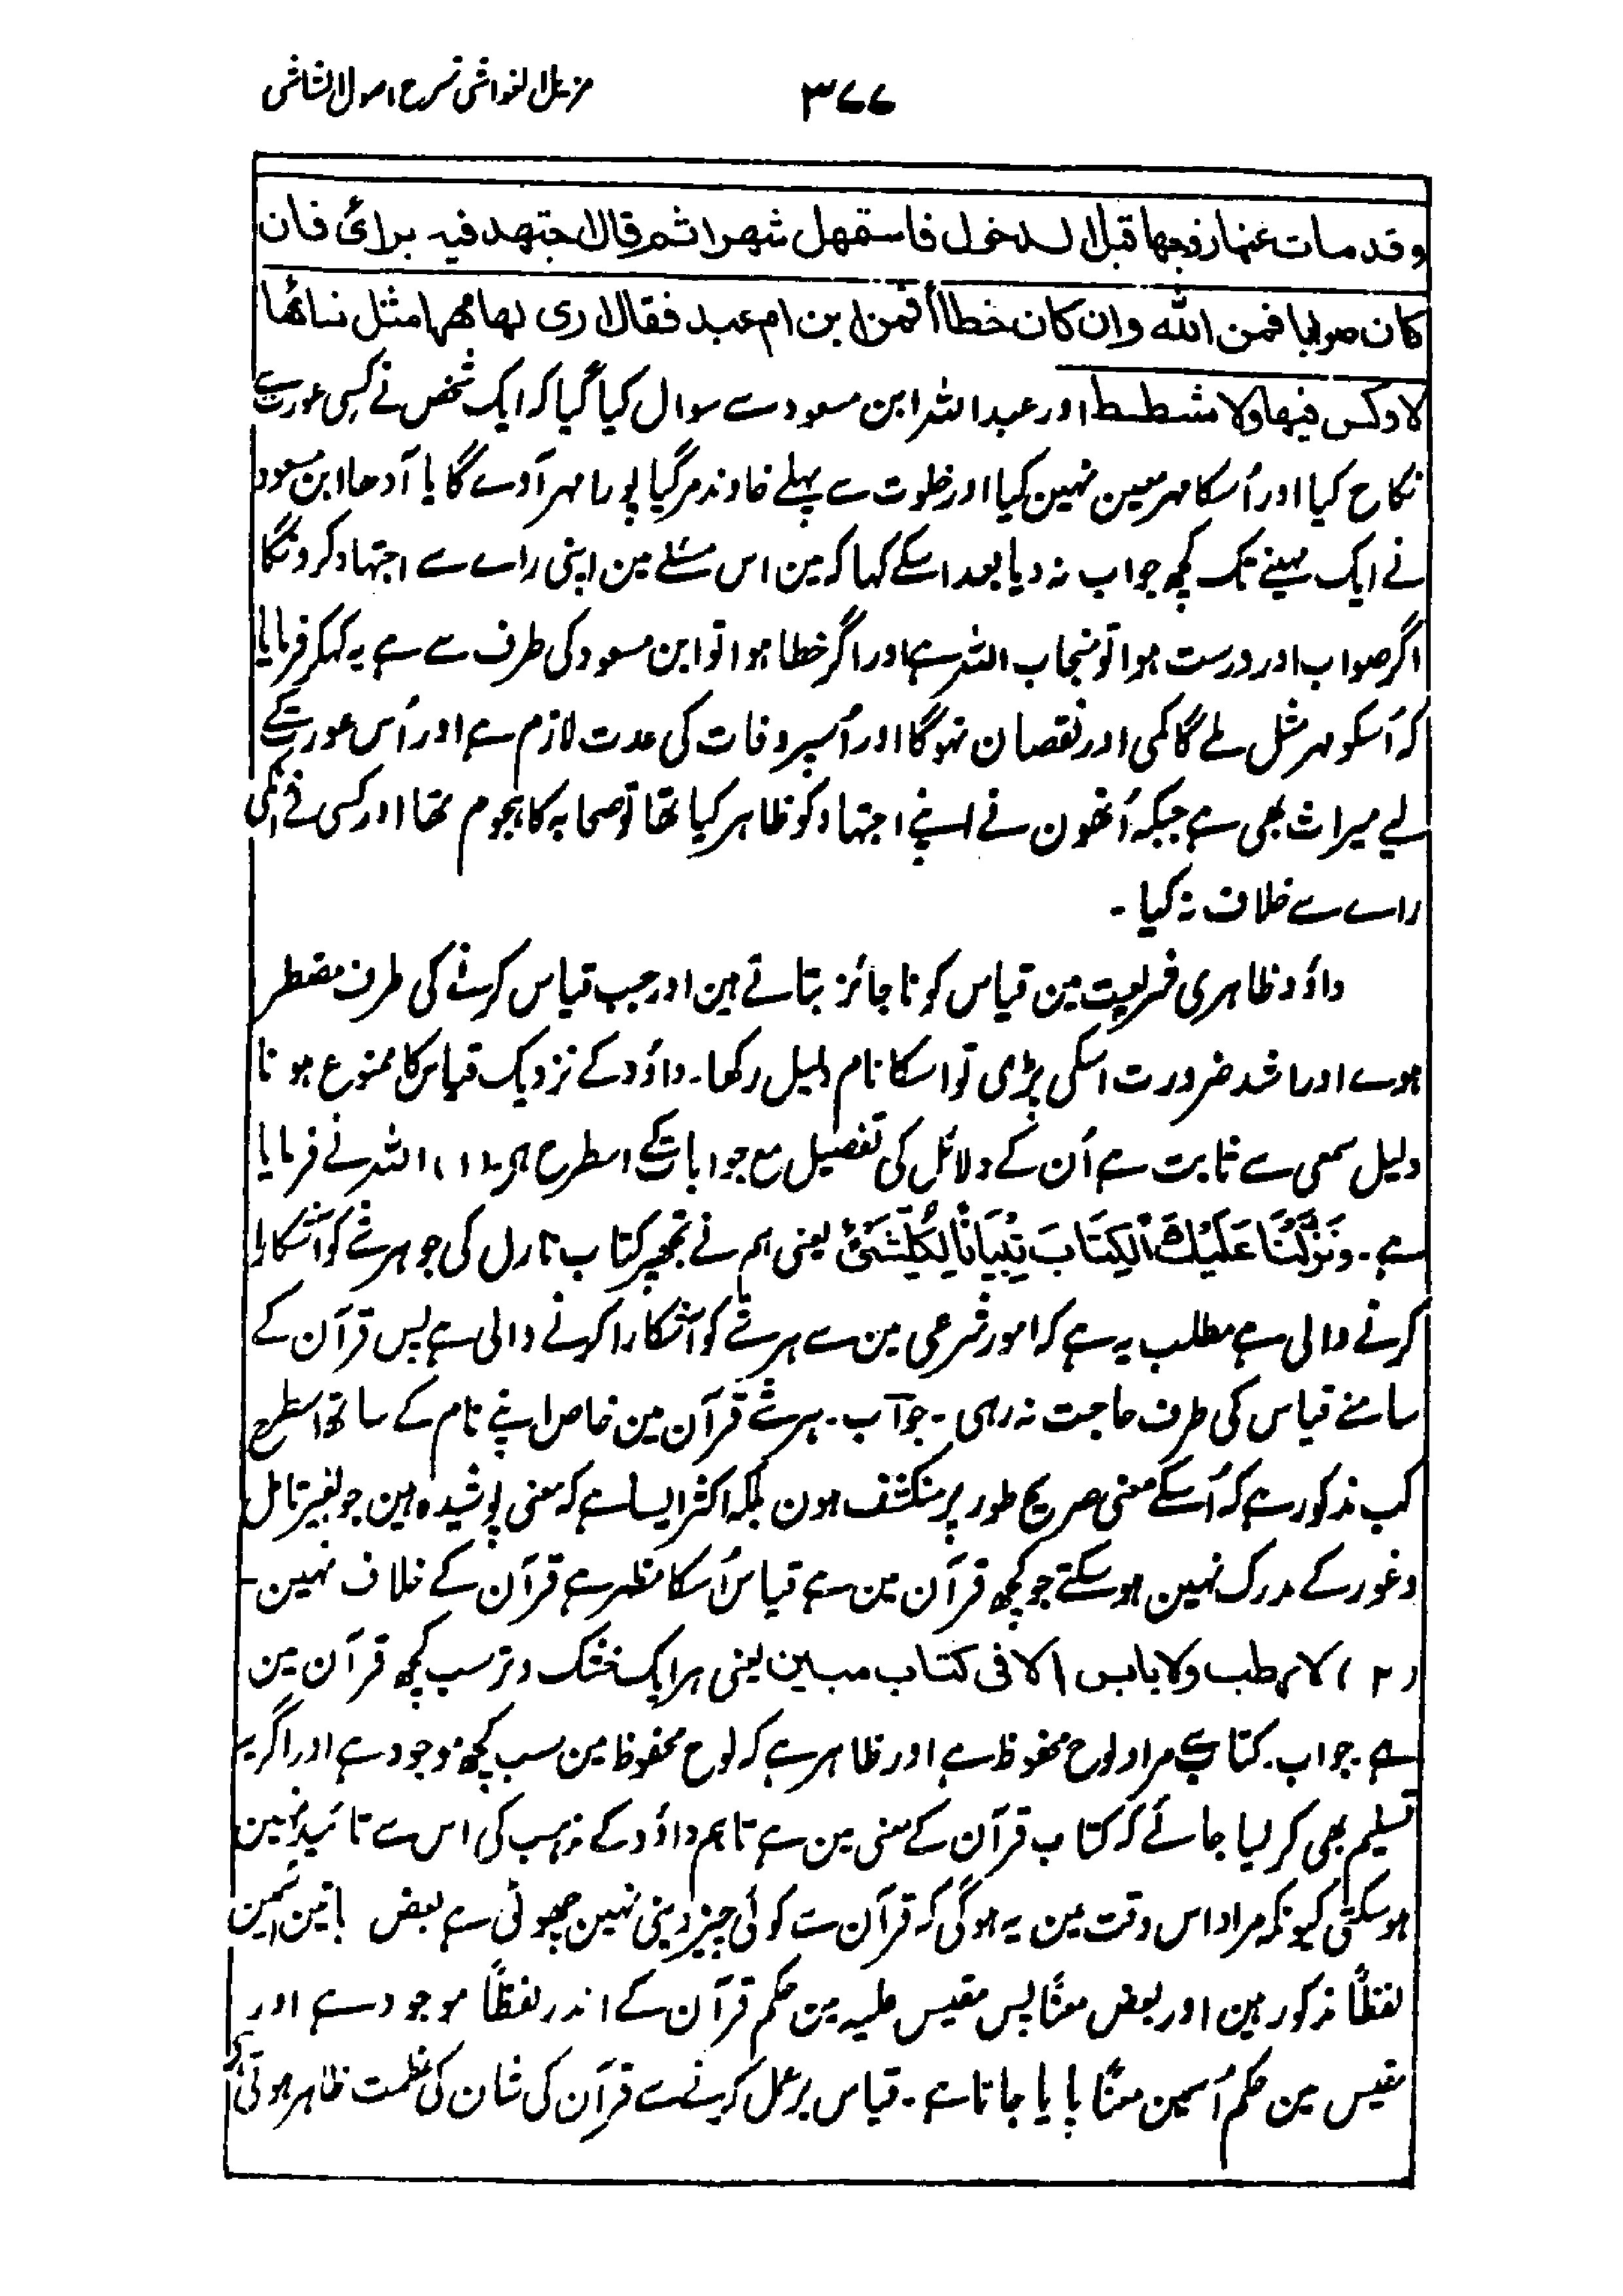 ۳۷۷ مزیل الغواشی شرح اصول الشاشی
وقد مات عنہا زوجہا قبل الدخول فاستمهل شہرا ثم قال اجتهد فیہ برائی فان
کان صوابا فمن اللہ وان کان خطأ فمن ابن ام عبد فقال اری لها مهر مثل نسائها
لا وکس فیها ولا شطط اور عبداللہ ابن مسعود سے سوال کیا گیا کہ ایک شخص نے کسی عورت سے
نکاح کیا اور اُسکا مہر معین نہین کیا اور خلوت سے پہلے خاوند مرگیا پورا مہر آوے گا یا آدھا ابن مسعود
نے ایک مہینے تک کچھ جواب نہ دیا بعد اسکے کہا کہ مین اس مسئلے مین اپنی راے سے اجتہاد کرونگا
اگر صواب اور درست ہوا تو منجاب اللہ ہے اور اگر خطا ہوا تو ابن مسعود کی طرف سے ہے یہ کہکر فرمایا
کہ اُسکو مہر مثل ملے گا کمی اور نقصان نہوگا اور اُسپر وفات کی عدت لازم ہے اور اُس عورت کے
لیے میراث بھی ہے جبکہ اُنھون نے اپنے اجتہاد کو ظاہر کیا تھا تو صحابہ کا ہجوم تھا اور کسی نے انکی
راے سے خلاف نہ کیا ۔
داؤد ظاہری شریعت مین قیاس کو نا جائز بتاتے ہین اور جب قیاس کرنے کی طرف مضطر
ہوے اور اشد ضرورت اسکی پڑی تو اسکا نام دلیل رکھا ۔ داؤد کے نزدیک قیاس کا ممنوع ہونا
دلیل سمعی سے ثابت ہے اُن کے دلائل کی تفصیل مع جوابات کے اسطرح ہے (۱) اللہ نے فرمایا
ہے ۔ وَنَزَّلْنَا عَلَيْكَ الْكِتَابَ تِبْيَانًا لِكُلِّ شَيْءٍ یعنی ہم نے تجھپر کتاب نازل کی جو ہر شے کو آشکارا
کرنے والی ہے مطلب یہ ہے کہ امور شرعی مین سے ہر شے کو آشکارا کرنے والی ہے پس قرآن کے
سامنے قیاس کی طرف حاجت نہ رہی ۔ جواب ۔ ہر شے قرآن مین خاص اپنے نام کے ساتھ اسطرح
کب مذکور ہے کہ اُسکے معنی صریح طور پر منکشف ہون بلکہ اکثر ایسا ہے کہ معنی پوشیدہ ہین جو بغیر تامل
وغور کے مدرک نہین ہوسکتے جو کچھ قرآن مین ہے قیاس اُسکا مظہر ہے قرآن کے خلاف نہین ۔
(۲) لا رطب ولا یابس الا فی کتاب مبین یعنی ہر ایک خشک وتر سب کچھ قرآن مین
ہے ۔ جواب ۔ کتاب سے مراد لوح محفوظ ہے اور ظاہر ہے کہ لوح محفوظ مین سب کچھ موجود ہے اور اگر یہ
تسلیم بھی کر لیا جائے کہ کتاب قرآن کے معنی مین ہے تاہم داؤد کے مذہب کی اس سے تائید نہین
ہوسکتی کیونکہ مراد اس وقت مین یہ ہوگی کہ قرآن سے کوئی چیز دینی نہین چھوٹی ہے بعض باتین اسمین
لفظًا مذکور ہین اور بعض معنًا پس مقیس علیہ مین حکم قرآن کے اندر لفظًا موجود ہے اور
مقیس مین حکم اُسمین معنًا پایا جاتا ہے ۔ قیاس پر عمل کرنے سے قرآن کی شان کی عظمت ظاہر ہوتی